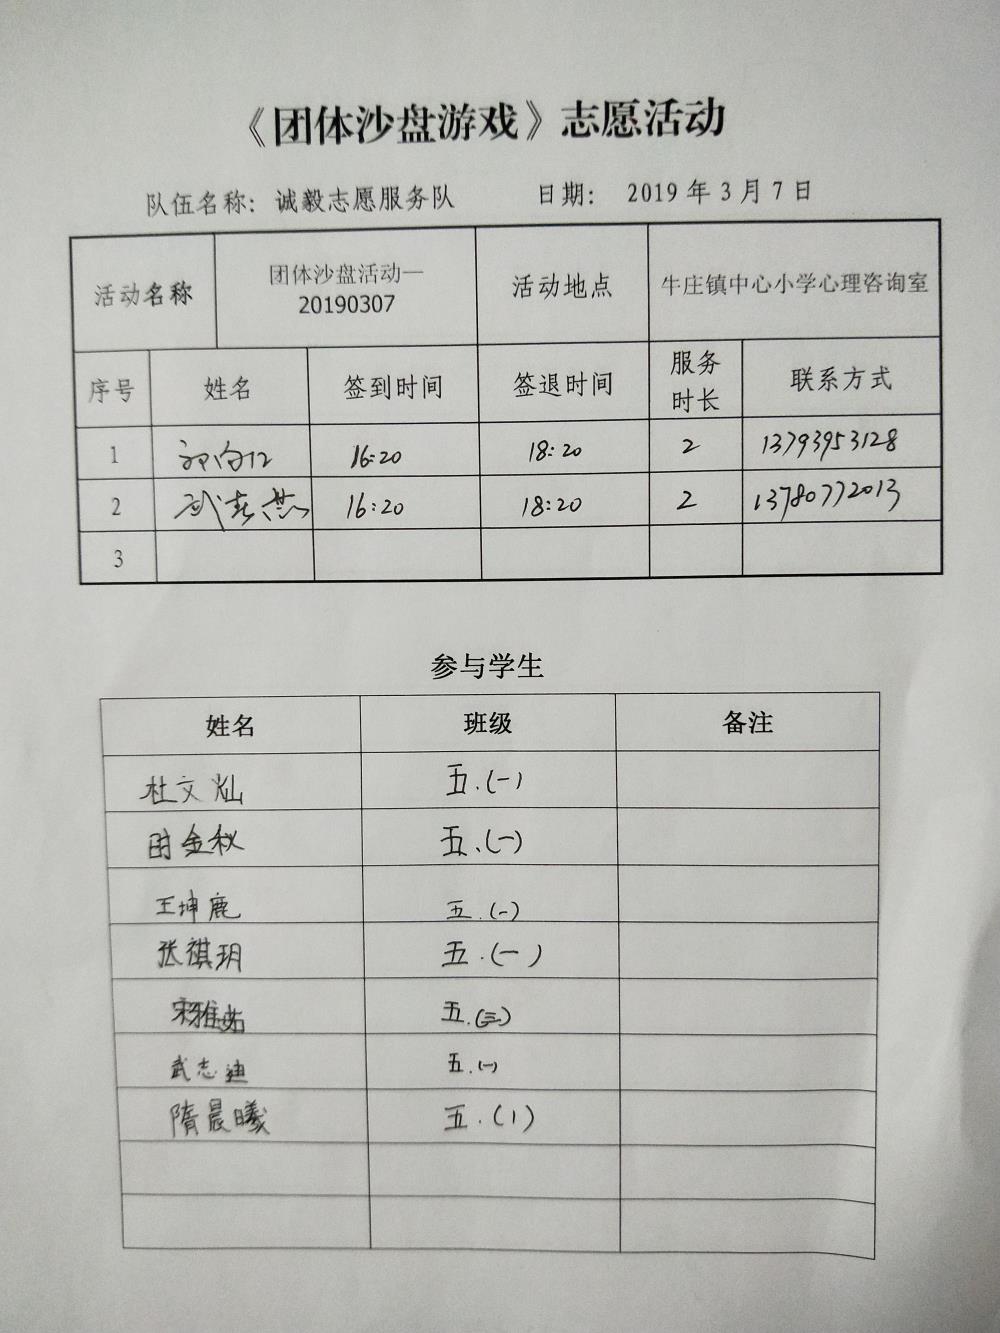 《团体沙盘游戏》志愿活动
队伍名称：诚毅志愿服务队 日期： 2019 年 3 月 7 日
活动名称 团体沙盘活动— 活动地点 牛庄镇中心小学心理咨询室
20190307
序号 姓名 签到时间 签退时间 服务 联系方式
时长
1 16:20 18:20 2 13793953128
2 武春燕 16:20 18:20 2 13780772013
3
参与学生
姓名 班级 备注
杜文灿 五.(一)
时金秋 五.(一)
王坤鹿 五.(一)
张祺玥 五.(一)
宋雅茹 五.(三)
武志迪 五.(一)
隋晨曦 五.(1)